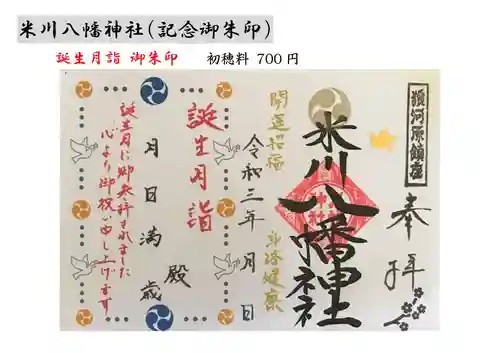 米川八幡神社(記念御朱印)
誕生月詣 御朱印 初穂料 700円
須河原鎮座
奉拝
米川八幡神社
開運招福
無病健康
令和三年 月 日
誕生月詣
殿
月 日 満 歳
誕生月に御参拝されました
心より御祝い申し上げます